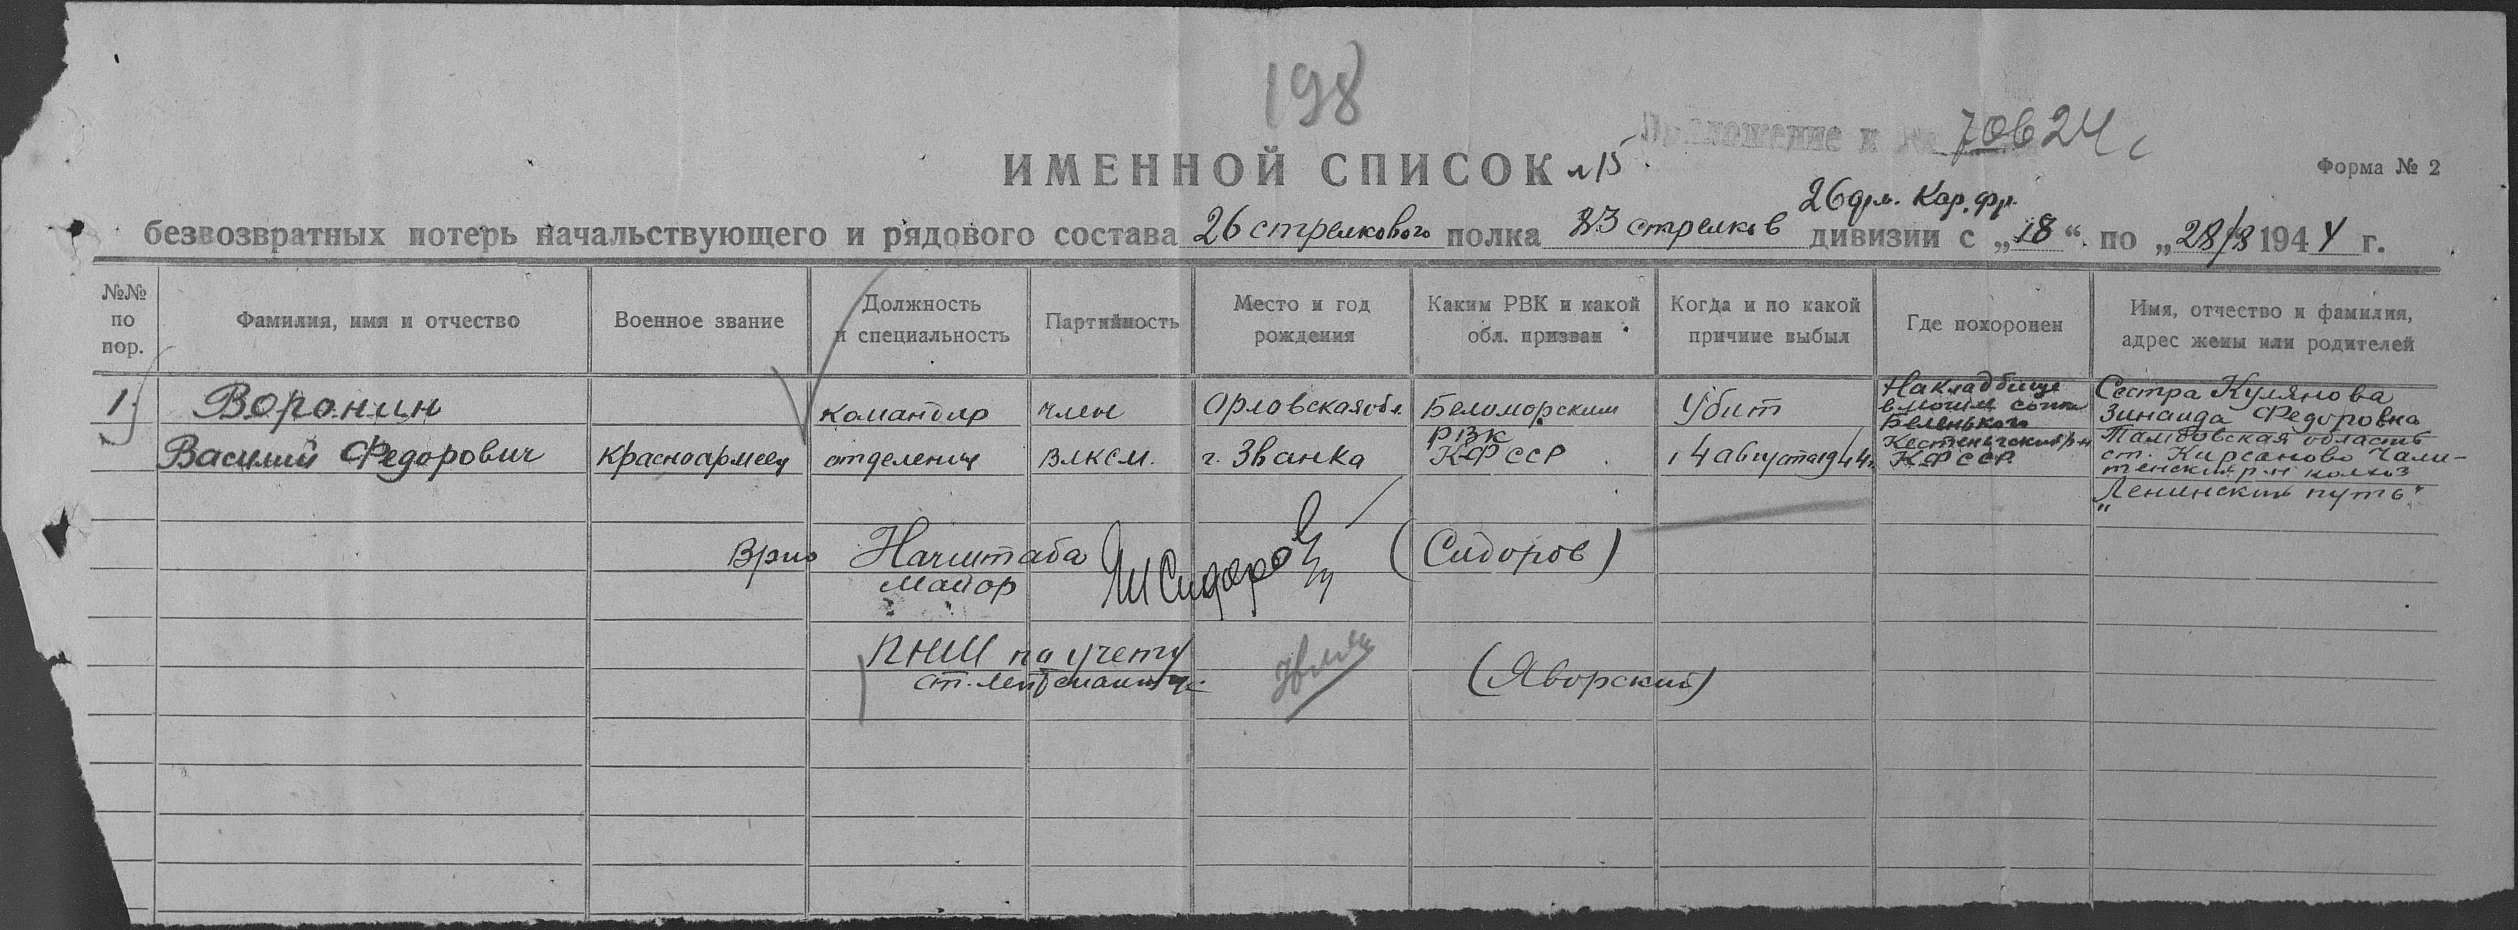 198
Приложение к № 70624с
ИМЕННОЙ СПИСОК №15
Форма № 2
26 арм. Кар. фр.
безвозвратных потерь начальствующего и рядового состава 26 стрелкового полка 83 стрелков дивизии с „18“ по „28/8 1944 г.
№№ по пор.
Фамилия, имя и отчество
Военное звание
Должность и специальность
Партийность
Место и год рождения
Каким РВК и какой обл. призван
Когда и по какой причине выбыл
Где похоронен
Имя, отчество и фамилия, адрес жены или родителей
1.
Воронин
Василий Федорович
Красноармеец
командир
отделения
член
ВЛКСМ.
Орловская обл
г. Званка
Беломорским
РВК
КФССР
Убит
14 августа 1944г.
На кладбище
Беленького
Кестеньгский р-н
КФССР
Сестра Кулянова
Зинаида Федоровна
Тамбовская область
ст. Кирсаново
колхоз
„Ленинский путь"
Врио Начштаба
майор
Сидоров
(Сидоров)
ПНШ по учету
ст. лейтенант
(Яворский)